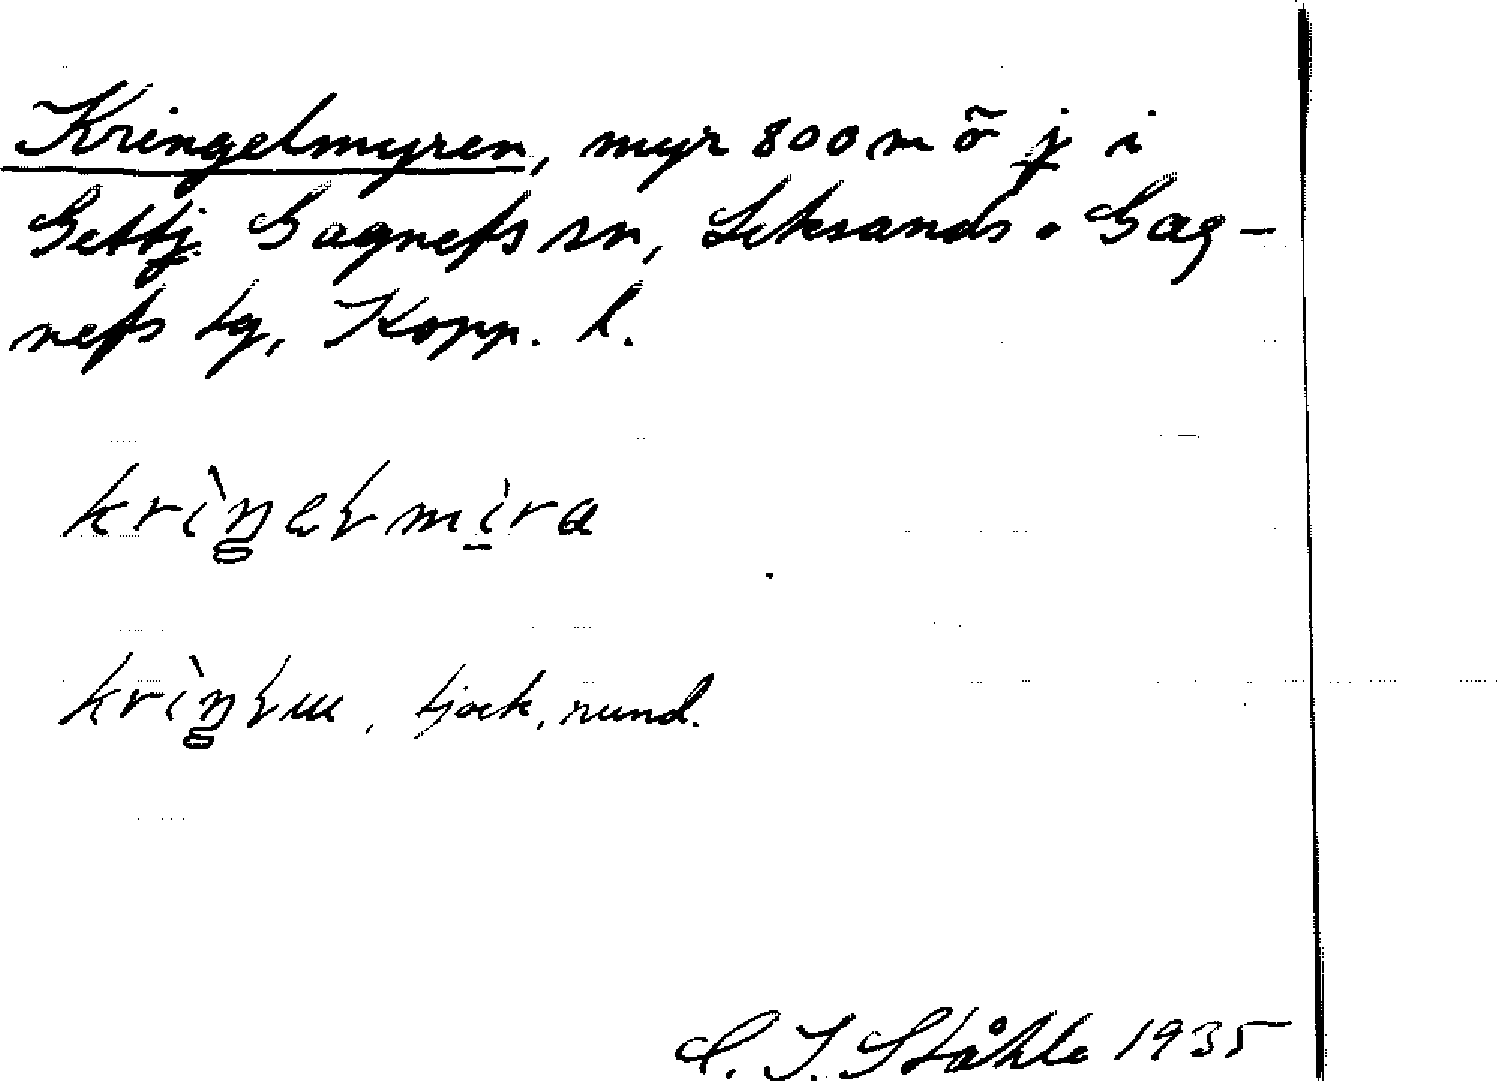 Kringelmyren, myr 800 m ö j i
Settj. Gagnefs sn, Leksands o Gag-
nefs tg, Kopp. l.
krìŋelmìra
krìŋlɯ, tjock, rund.
C. I. Ståhle 1935